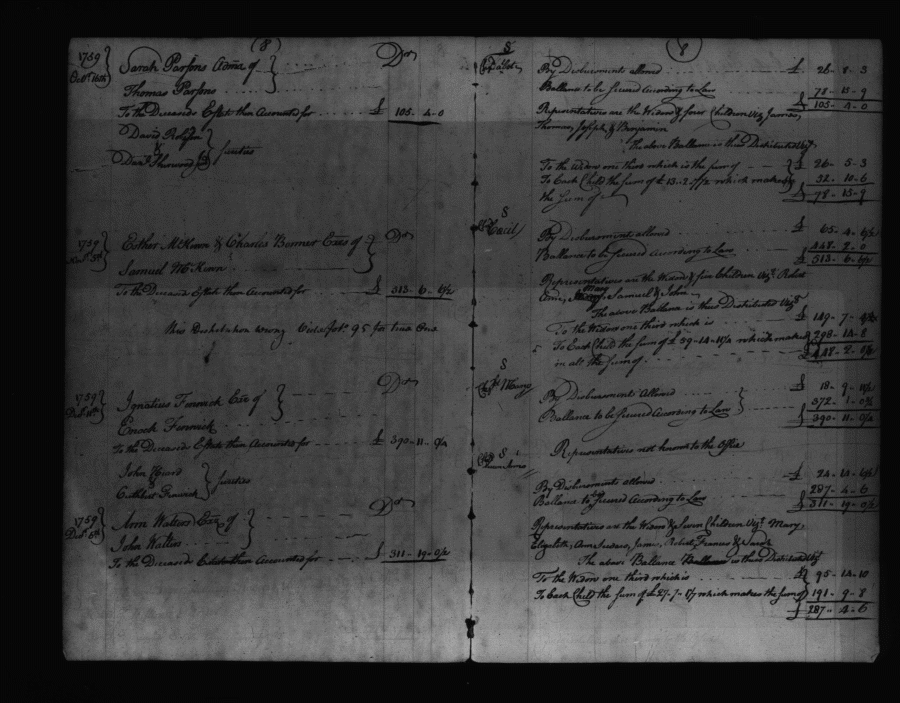 (8)
1759
Sarah Parsons Admx of
Thomas Parsons
Dr
To the Deceaseds Estate then Accounted for £ 105.4.0
David
&
sureties
1759
Esther McKeown & Charles Exes of
Samuel McKeown
Dr
To the Deceaseds Estate then Accounted for £ 513.6.
this Distribution wrong
1759
Ignatius Fenwick Exe of
Enoch Fenwick
Dr
To the Deceaseds Estate then Accounted for £ 390-11-
John
&
Cuthbert Fenwick
sureties
1759
Ann Walters Exx of
John Walters
Dr
To the Deceaseds Estate then Accounted for £ 311-19-0½
8
S
By Disbursments allowed £ 26-8-3
Ballance to be secured According to Law 78-15-9
£ 105-4-0
Representatives are the Widow & four Children Vizt James,
Thomas, Joseph & Benjamin
The above Ballance is thus Distributed Vizt
To the Widow one third which is the sum of £ 26-5-3
To Each Child the sum of £13-2-7½ which makes 52-10-6
the sum of £ 78-15-9
S
Cecil
By Disbursments allowed £ 65-4-
Ballance to be secured According to Law 448-2-0
£ 513-6-
Representatives are the Widow & five Children Vizt Robert
Mary, Samuel & John
The above Ballance is thus Distributed Vizt
To the Widow one third which is £ 149-7-
To Each Child the sum of £59-14-11½ which makes 298-14-8
in all the sum of £ 448-2-0½
S
St Marys
By Disbursments Allowed £ 18-9-
Ballance to be secured According to Law 372-1-
£ 390-11-
Representatives not known to the Office
S
Queen Annes
By Disbursments allowed £ 24-14-6½
Ballance to be secured According to Law 287-4-6
£ 311-19-0½
Representatives are the Widow & Seven Children Vizt Mary,
Elizabeth, James, Robert, Frances & Sarah
The above Ballance is thus Distributed Vizt
To the Widow one third which is £ 95-14-10
To Each Child the sum of £27-7-1 which makes the sum of 191-9-8
£ 287-4-6